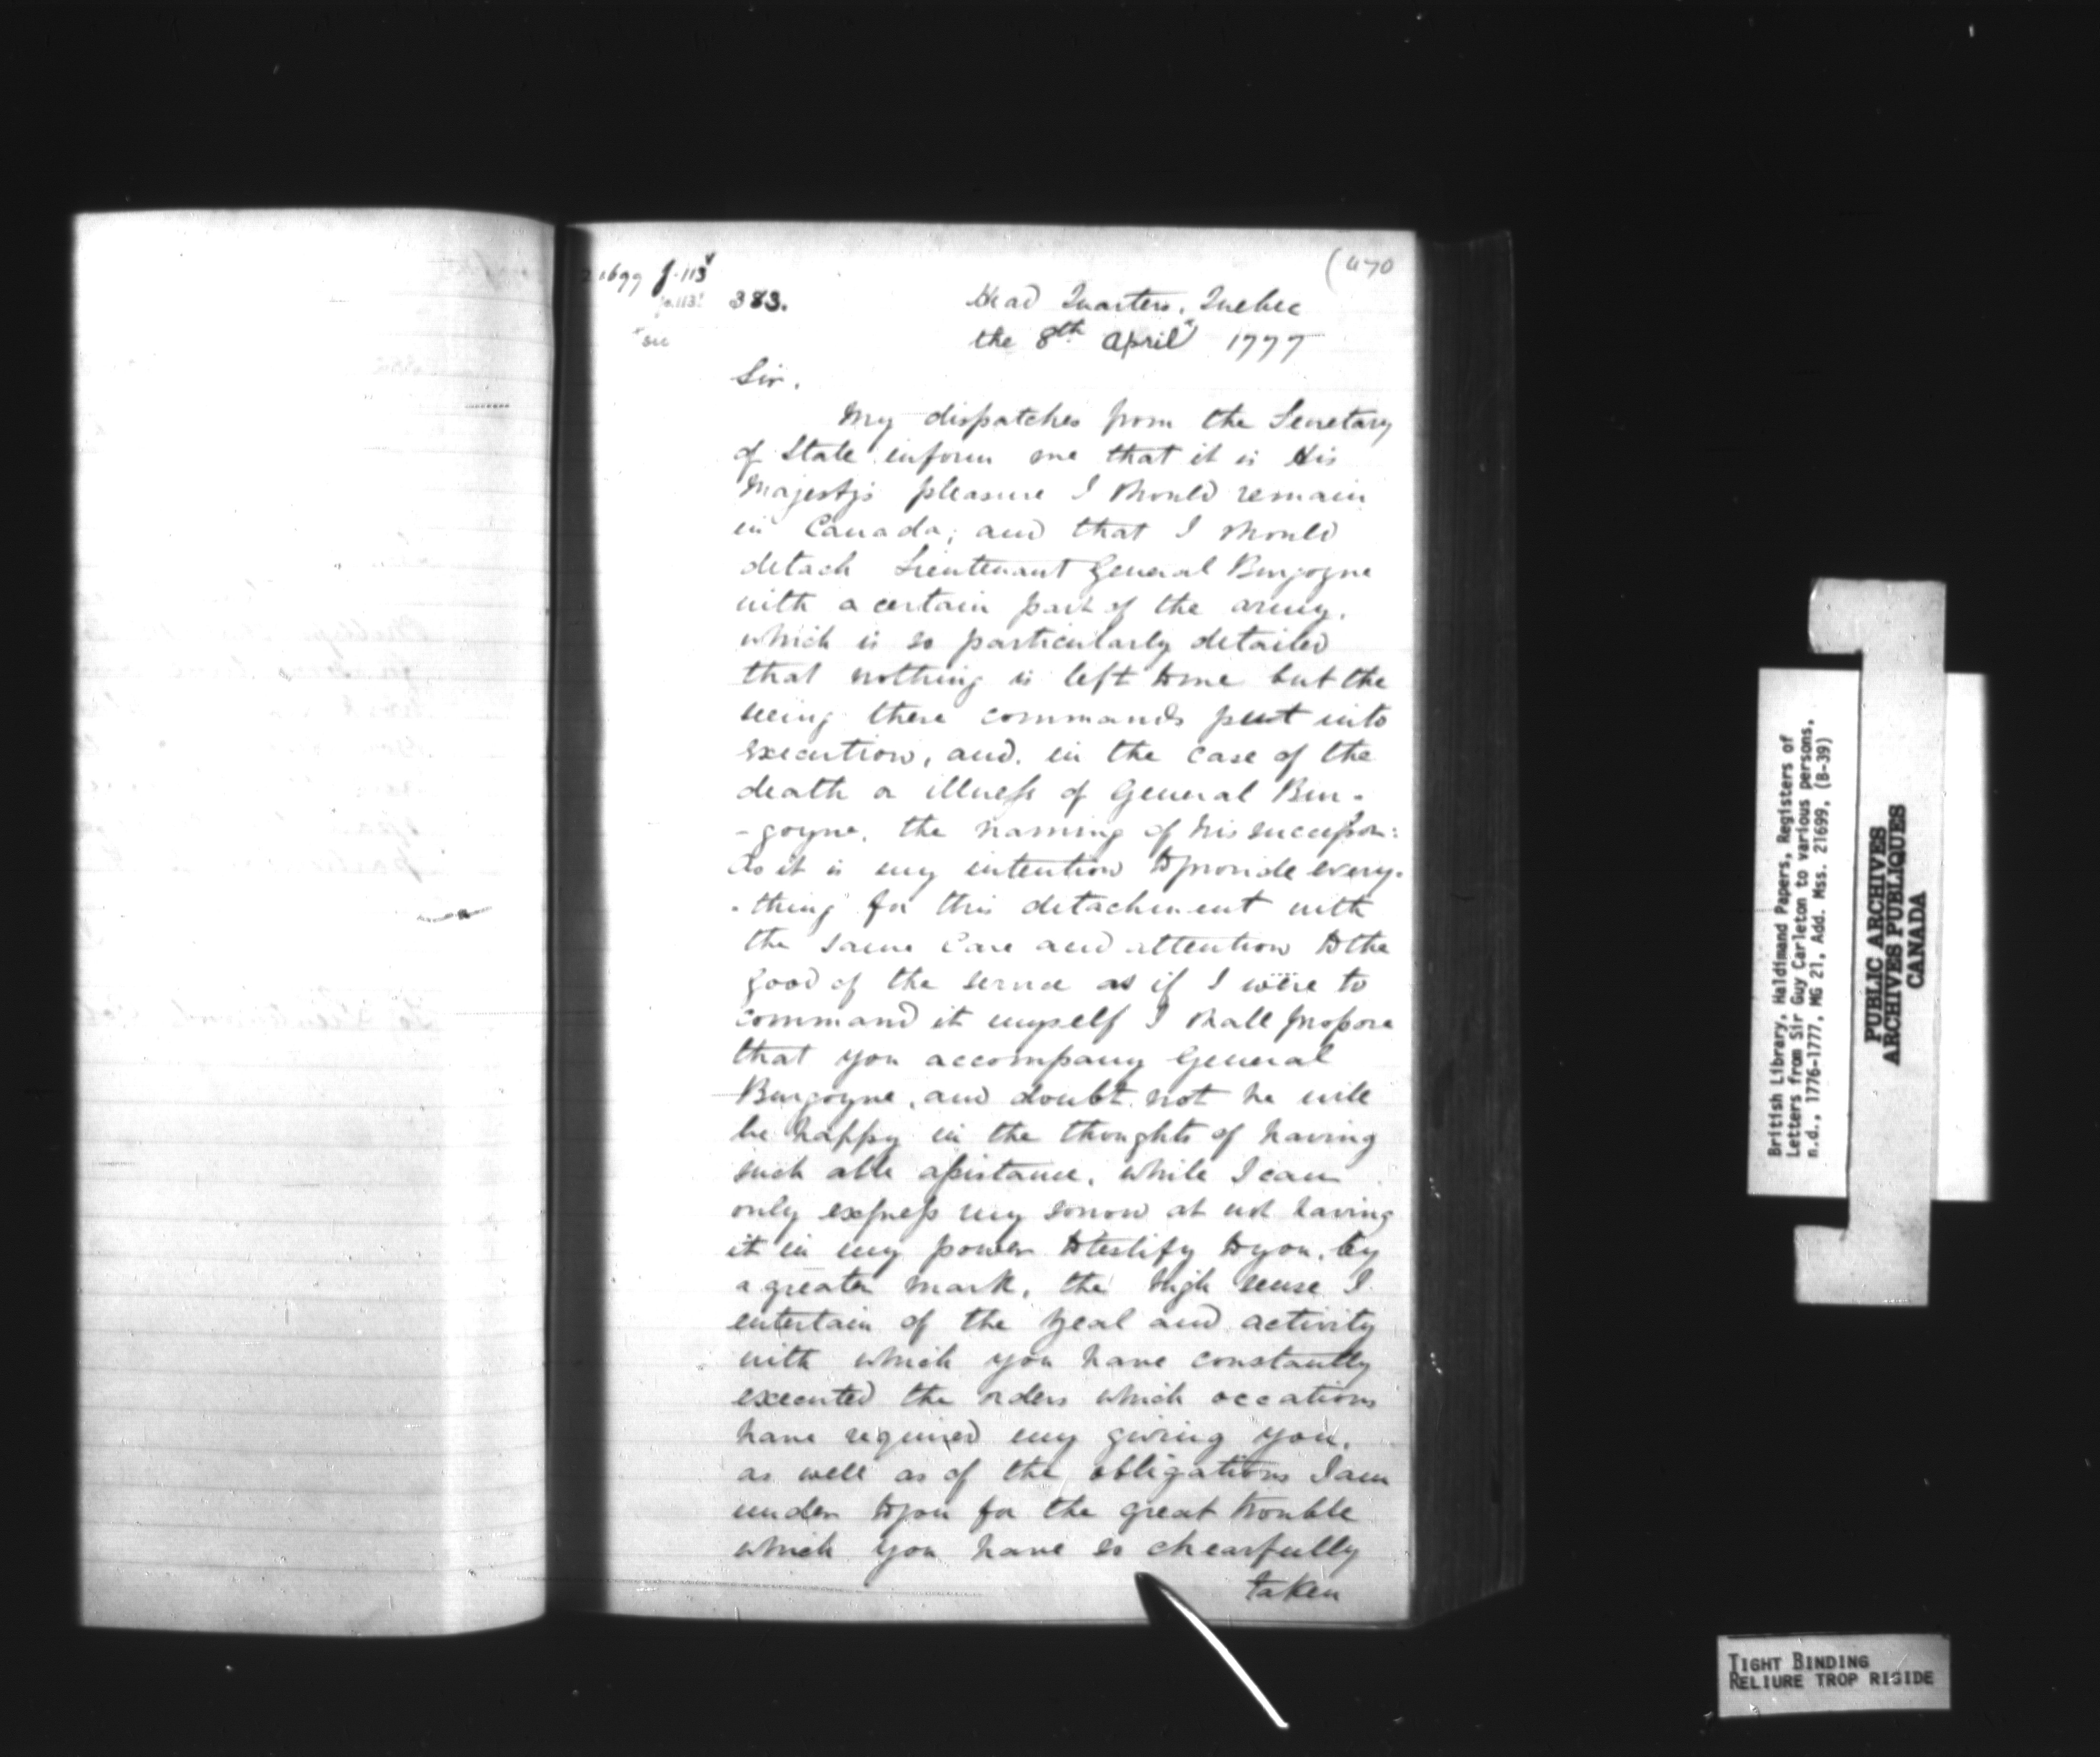 21699 f.113v
fo.113!
383.
(470
Head Quarters, Quebec
the 8th april 1777
Sir.
My dispatches from the Secretary
of State inform me that it is His
Majesty's pleasure I should remain
in Canada; and that I should
detach Lieutenant General Burgoyne
with a certain part of the army,
which is so particularly detailed
that nothing is left to me but the
seeing these commands put into
execution, and, in the case of the
death or illness of General Bur-
-goyne, the naming of his successor:
As it is my intention to provide every-
-thing for this detachment with
the same care and attention to the
good of the service as if I were to
command it myself I shall propose
that you accompany General
Burgoyne, and doubt not he will
be happy in the thoughts of having
such able assistance, while I can
only express my sorrow at not having
it in my power to testify to you, by
a greater mark, the high sense I
entertain of the zeal and activity
with which you have constantly
executed the orders which occations
have required my giving you,
as well as of the obligations I am
under to you for the great trouble
which you have so chearfully
taken
British Library, Haldimand Papers, Registers of
Letters from Sir Guy Carleton to various persons,
n.d., 1776-1777, MG 21, Add. Mss. 21699, (B-39)
PUBLIC ARCHIVES
ARCHIVES PUBLIQUES
CANADA
TIGHT BINDING
RELIURE TROP RIGIDE